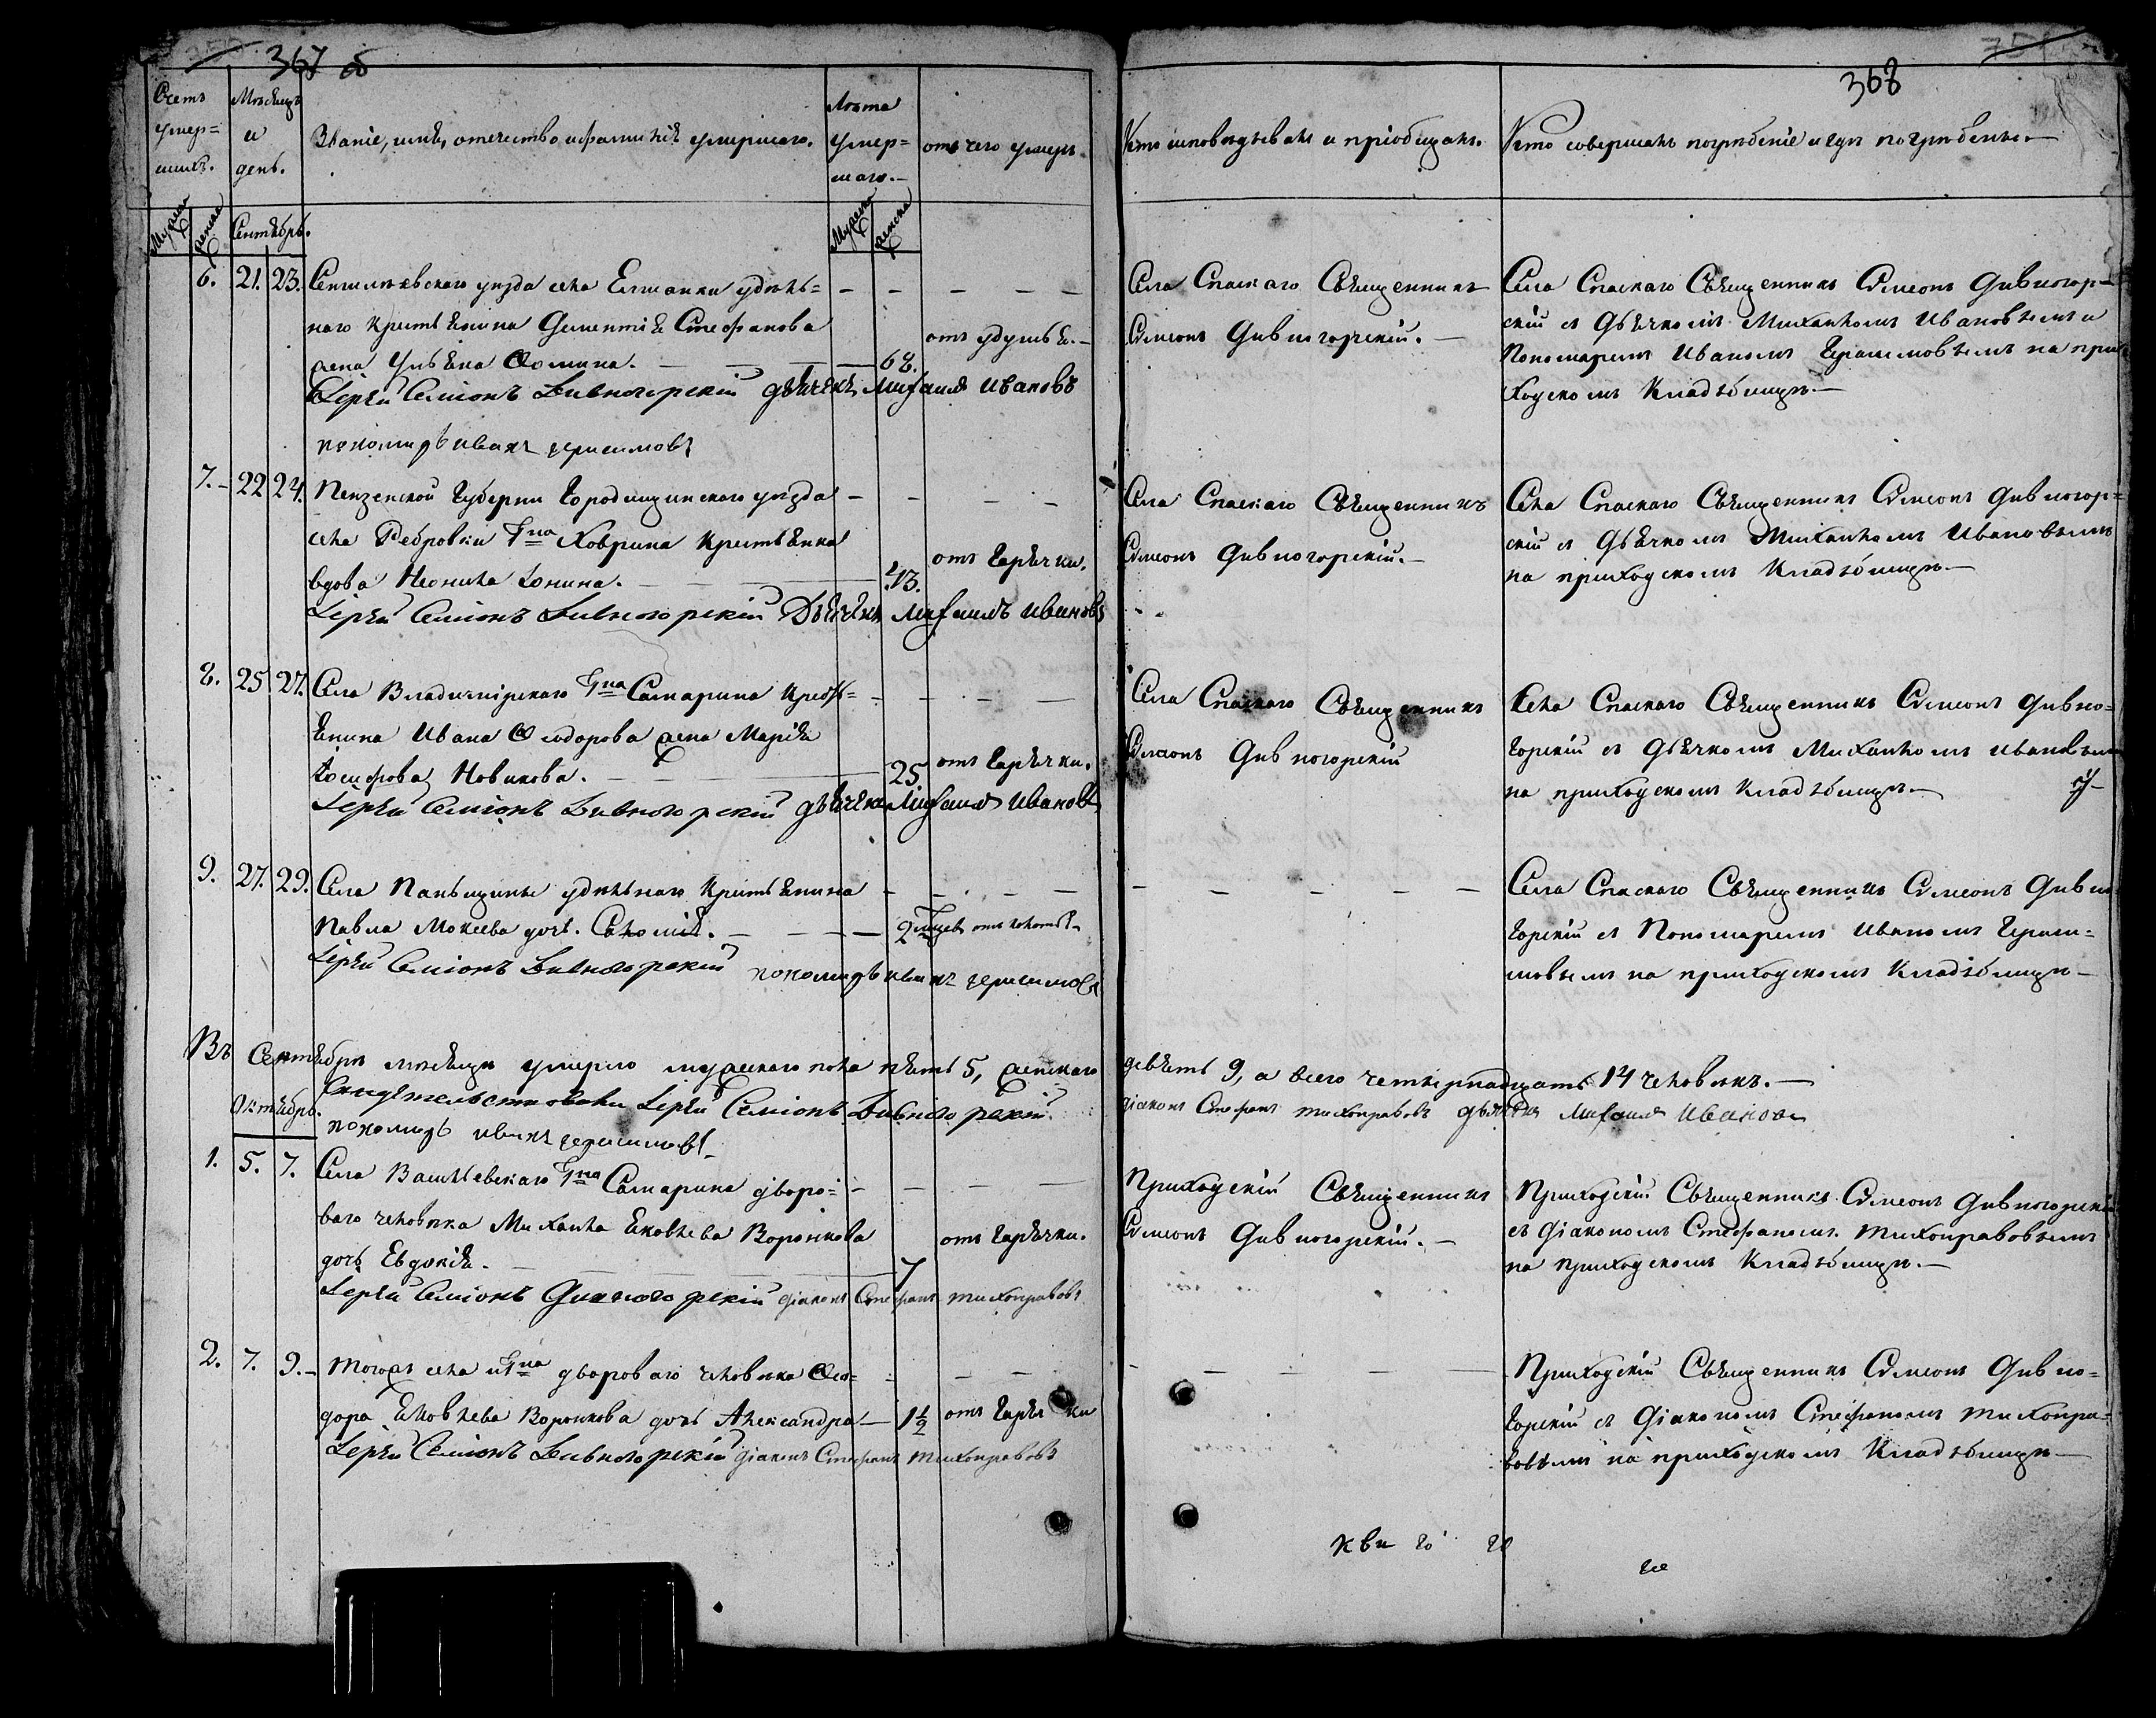 367 об
368
Счетъ умер=шихъ.
Мѣсяцъ и день.
Званіе, имя, отечество и фамилія умершаго.
Лѣта умер=шаго.
отъ чего умеръ
Кто исповѣдывалъ и пріобщалъ.
Кто совершалъ погребеніе и гдѣ погребены.
Мужска
женска
Сентябрь.
Мужска
женска
6. 21. 23. Сенгилѣевскаго уѣзда села Елшанки удѣль=
наго крестьянина Дементія Стефанова
жена Ульяна Фомина. 68.
отъ удушья.
Іерей Симеонъ Дивногорскій дьячекъ Михаилъ Ивановъ
пономарь Иванъ Герасимовъ
Села Спаскаго Священникъ
Симеонъ Дивногорскій.
Села Спаскаго Священникъ Симеонъ Дивногор=
скій съ Дьячкомъ Михаиломъ Ивановымъ и
Пономаремъ Иваномъ Герасимовымъ на при
ходскомъ Кладбищѣ.
7. 22 24. Пензенской Губерніи Городищинскаго уѣзда
села Ребровки Гна Ховрина крестьянка
вдова Неонила Іонина. 43.
отъ Гарячки.
Іерей Симеонъ Дивногорскій Дьячекъ Михаилъ Ивановъ
Села Спаскаго Священникъ
Симеонъ Дивногорскій.
Села Спаскаго Священникъ Симеонъ Дивногор=
скій съ Дьячкомъ Михаиломъ Ивановымъ
на приходскомъ Кладбищѣ.
8. 25 27. Села Владимірскаго Гна Самарина крест=
янина Ивана Ѳеодорова жена Марія
Іосифова Новикова. 25
отъ Гарячки.
Іерей Симеонъ Дивногорскій дьячекъ Михаилъ Ивановъ
Села Спаскаго Священникъ
Симеонъ Дивногорскій
Села Спаскаго Священникъ Симеонъ Дивно=
горскій съ Дьячкомъ Михаиломъ Ивановымъ
на приходскомъ Кладбищѣ.
9. 27. 29. Села Паньщины удѣльнаго крестьянина
Павла Мокеева дочь Саломія. 2 мѣсец
Іерей Симеонъ Дивногорскій пономарь Иванъ Герасимовъ
Села Спаскаго Священникъ Симеонъ Дивно
горскій съ Пономаремъ Иваномъ Гераси=
мовымъ на приходскомъ Кладбищѣ
Въ Сентябрѣ мѣсяцѣ умерло мужескаго пола пять 5, женскаго
девять 9, а всего четырнадцать 14 человѣкъ.
Свидѣтельствовали Іерей Симеонъ Дивногорскій
діаконъ Стефанъ Тихонравовъ дьячекъ Михаилъ Ивановъ
пономарь Иванъ Герасимовъ
Октябрь.
1. 5. 7. Села Васильевскаго Гна Самарина дворо=
ваго человѣка Михаила Яковлева Воронкова
дочь Евдокія. 7
отъ Гарячки.
Іерей Симеонъ Дивногорскій діаконъ Стефанъ Тихонравовъ
Приходскій Священникъ
Симеонъ Дивногорскій.
Приходскій Священникъ Симеонъ Дивногорскій
съ Діакономъ Стефаномъ Тихонравовымъ
на приходскомъ Кладбищѣ.
2. 7. 9. Тогожъ села и Гна двороваго человѣка Ѳео=
дора Яковлева Воронкова дочь Александра 1 1/2
отъ Гарячки
Іерей Симеонъ Дивногорскій діаконъ Стефанъ Тихонравовъ
Приходскій Священникъ Симеонъ Дивно=
горскій съ Діакономъ Стефаномъ Тихонра=
вовымъ на приходскомъ Кладбищѣ